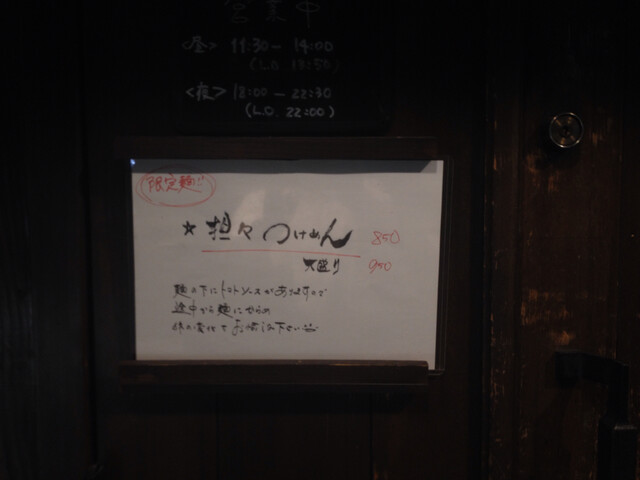 営業中
<昼> 11:30 - 14:00
(L.O. 13:50)
<夜> 18:00 - 22:30
(L.O. 22:00)
限定麺!!
★ 担々つけめん 850
大盛り 950
麺の下にトマトソースがありますので
途中から麺にからめ
味の変化をお楽しみ下さい